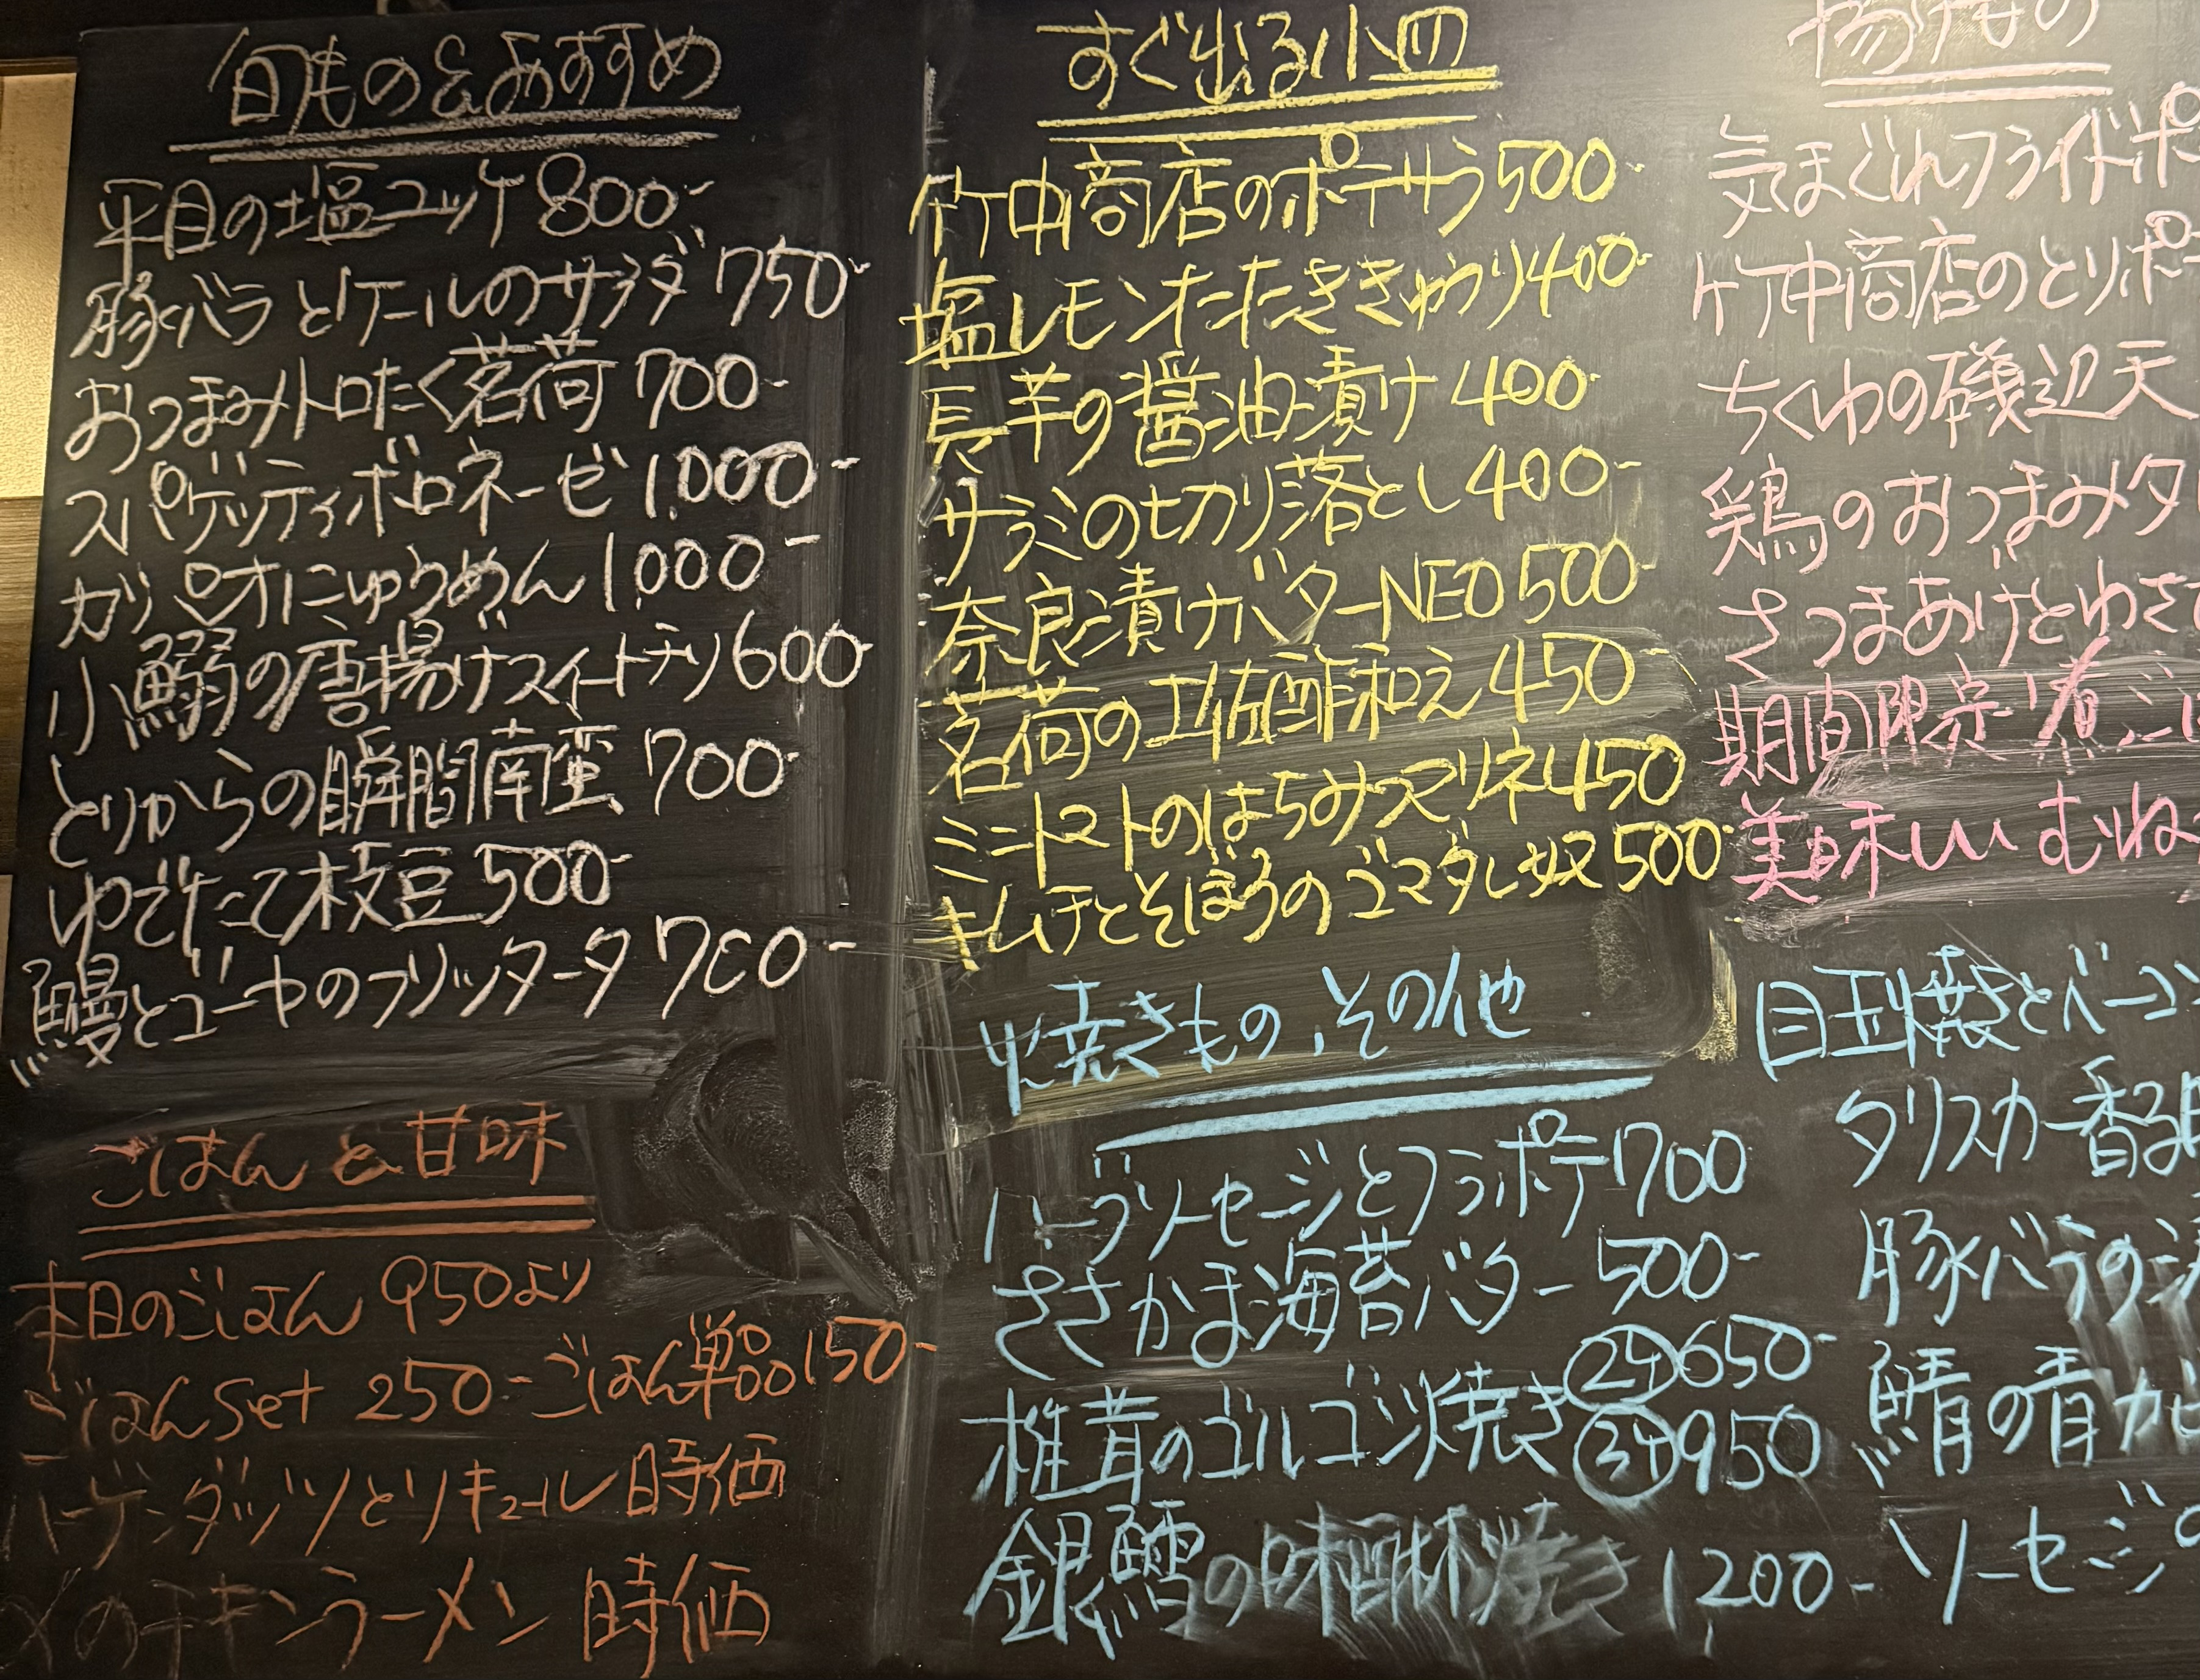 旬もの&おすすめ
平目の塩ユッケ 800-
豚バラとケールのサラダ 750-
おつまみトロたく茗荷 700-
スパゲッティボロネーゼ 1,000-
カツオにゅうめん 1,000-
小鰯の唐揚げスイートチリ 600-
とりからの瞬間南蛮 700-
ゆでたて枝豆 500-
鰻とゴーヤのフリッタータ 700-
ごはんと甘味
本日のごはん 950より
ごはんset 250- ごはん単品 150-
ハーゲンダッツとリキュール 時価
〆のチキンラーメン 時価
すぐ出る小皿
竹中商店のポテサラ 500-
塩レモンたたききゅうり 400-
長芋の醤油漬け 400-
サラミの切り落とし 400-
奈良漬けバターNEO 500-
茗荷の土佐酢和え 450-
ミニトマトのはちみつマリネ 450
キムチとそぼろのゴマダレ奴 500-
焼きもの、その他
ハーブソーセージとフラポテ 700
ささかま海苔バター 500-
椎茸のゴルゴンゾーラ焼き 2ケ 650-
3ケ 950
銀鱈の味醂焼き 1200-
揚げもの
気まぐれフライドポ
竹中商店のとりポ
ちくわの磯辺天
鶏のおつまみタ
さつまあげとわさ
期間限定!煮こ
美味しい むね
目玉焼きとベーコン
タリスカー香る
豚バラの
鯖の青カビ
ソーセージの